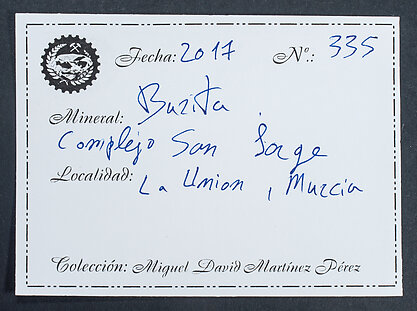 Fecha: 2017 Nº.: 335
Mineral: Barita
Complejo San Jorge
Localidad: La Union, Murcia
Colección: Miguel David Martínez Pérez